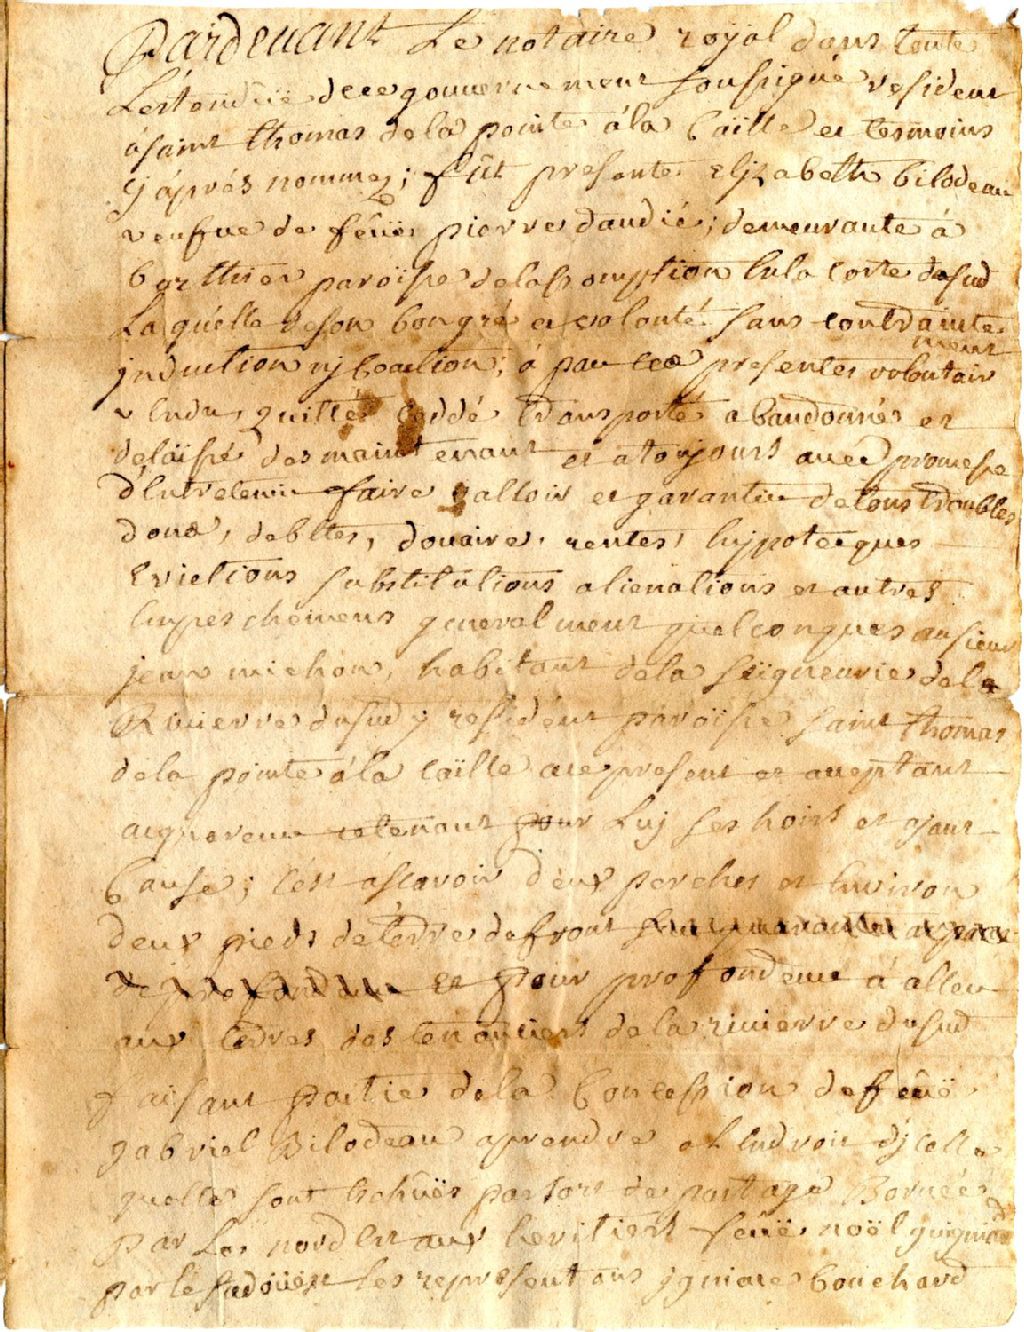 Pardevant Le notaire royal dans toute
L'estendüe dece gouvernement soussigné resident
à saint thomas dela pointe á la Caille et tesmoins
cy áprés nommez ; fût presente Elizabeth bilodeau
veufve de feüe pierre dandié ; demeurante á
berthier paroisse delassomption en la coste du sud
Laquélle de son bongré et volonté sans contrainte
induction ny coaction ; á par ces presentes volontair
ment
vendu, quitté, ceddé transporté abandonné et
delaissé des maintenant et atoujours avec promesse
d'entretenir faire valloir et garantir detous troubles
dons, debttes, douaire, rentes, hypotecques
Evictions substitutions alienations et autres
Empeschemens generalment quelconques au sieur
jean michon, habitant dela seigneurie dela
Rivierre du sud y residént paroisse saint thomas
dela pointe á la caille ace present et aceptant
acquereur retenant pour Luy ses hoirs et ayant
Cause ; c'est ascavoir deux perches et Environ
deux pieds de terre defront
Et pour profondeur á aller
aux terres des tenanciers dela rivierre du sud
faisant partie dela Concession defeüe
gabriel Bilodeau aprendre a L'endroit dj celle
quelle sont Echüës par sort de partage Bornéés
par Le nordest aux heritiers feüe noël guignard
par le sudoüest les representans jgniace bouchard